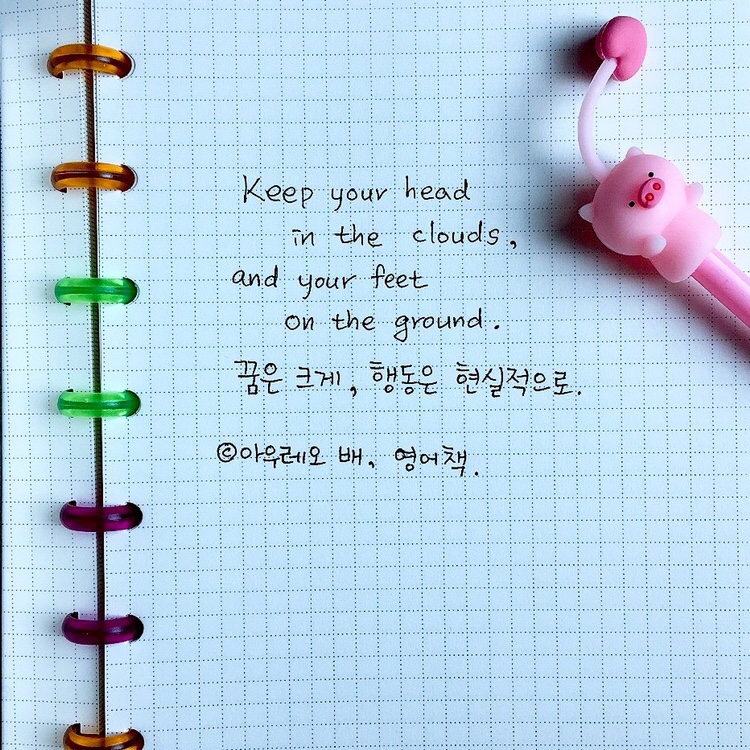 Keep your head
in the clouds,
and your feet
on the ground.
꿈은 크게, 행동은 현실적으로.
©아우레오 배, 영어책.